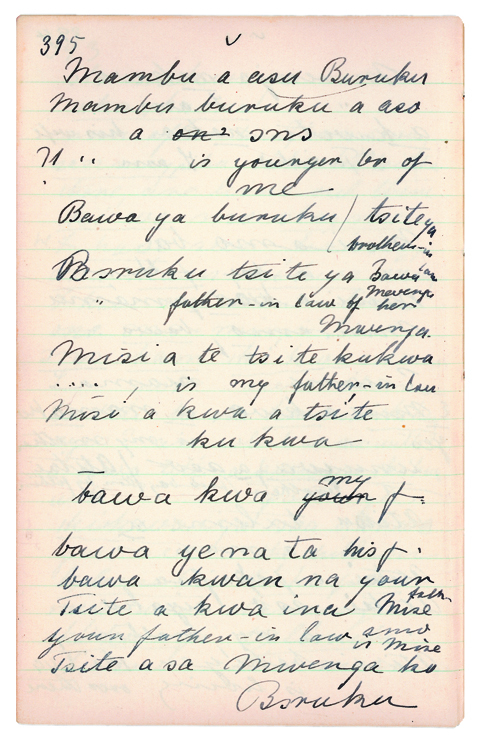 395
Mambu a asu Buruku
Mambu buruku a aso
a on² ɔnɔ
is younger br of
me
Bawa ya buruku / tsite ya
brother-in
law
Bɔruku tsite ya Bawa
Mwenga
" father-in law of her
Mwenga.
Misi a te tsite kukwa
.... , is my father-in law
Misi a kwa a tsite
ku kwa
my
bawa kwa your f.
bawa yena ta his f.
bawa kwan na your
fath-
Tsite a kwa ina Mise
your father-in law
is Mise
Tsite a sa Mwenga ko
Bɔruku